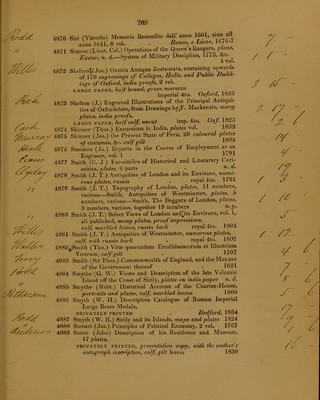 269
4870 Siri (Vittorio) Memorie Recondite dall' anno 1601, sine all
anno 1641, 8 vol. Ronco, e Lione, 1676-7
4871 Simcoe (Lieut. Col.) Operations of the Queen's Rangers, plans,
Exeter, n. d.—System of Military Discipline, 1773, &c.
4 vol.
4872 Skelton (Jos.) Oxonia Antiqua Restaurata, containing upwards
of 170 engravings of Colleges, Halls, and Public Build-
ings of Oxford, india proofs, 2 vol.
LARGE PAPER, half bound, green morocco
imperial 4to. Oxford, 1823
4873 Skelton (J.) Engraved Illustrations of the Principal Antiqui-
ties of Oxfordshire, from Drawings by F. Mackenzie, many
plates, india proofs,
LARGE PAPER, half calf, uncut imp. 4to. Oxf. 1823
4874 Skinner (Thos.) Excursions in India, plates vol. 1833
4875 Skinner (Jos.) the Present State of Peru, 20 coloured plates
of costumes, &c. calf gilt 1805
4876 Smeaton (Jo.) Reports in the Course of Employment as an
Engineer, vol. 1 1791
4877 Smith (C. J.) Fac-similes of Historical and Literary Curi-
osities, plates, 6 parts n. d.
4878 Smith (J. T.) Antiquities of London and its Environs, nume-
rous plates, russia royal 4to. 1791
4879 Smith (J. T.) Topography of London, plates, 11 numbers,
various—Smith, Antiquities of Westminster, plates, 5
numbers, various—Smith, The Beggars of London, plates,
3 numbers, various, together 19 numbers v. y.
4880 Smith (J. T.) Select Views of London and its Environs, vol. 1,
all published, many plates, proof impressions,
calf, marbled leaves, russia back royal 4to. 1804
4881 Smith (J. T.) Antiquities of Westminster, numerous plates,
calf, with russia back royal 4to. 1807
4882 Smith (Tho.) Vitæ quorundam Eruditissimorum et Illustrium
Virorum, calf gilt 1707
4883 Smith (Sir Thos.) Commonwealth of England, and the Manner
of the Government thereof 1621
4884 Smythe (G. W.) Views and Description of the late Volcanic
Island off the Coast of Sicily, plates on india paper n. d.
4885 Smythe (Robt.) Historical Account of the Charter-House,
portraits and plates, calf, marbled leaves 1808
4886 Smyth (W. H.) Descriptive Catalogue of Roman Imperial
Large Brass Medals,
PRIVATELY PRINTED Bedford, 1834
4887 Smyth (W. H.) Sicily and its Islands, maps and plates 1824
4888 Steuart (Jas.) Principles of Political Economy, 2 vol. 1767
4889 Soane (John) Description of his Residence and Museum,
17 plates,
PRIVATELY PRINTED, presentation copy, with the author's
autograph inscription, calf, gilt leaves 1830